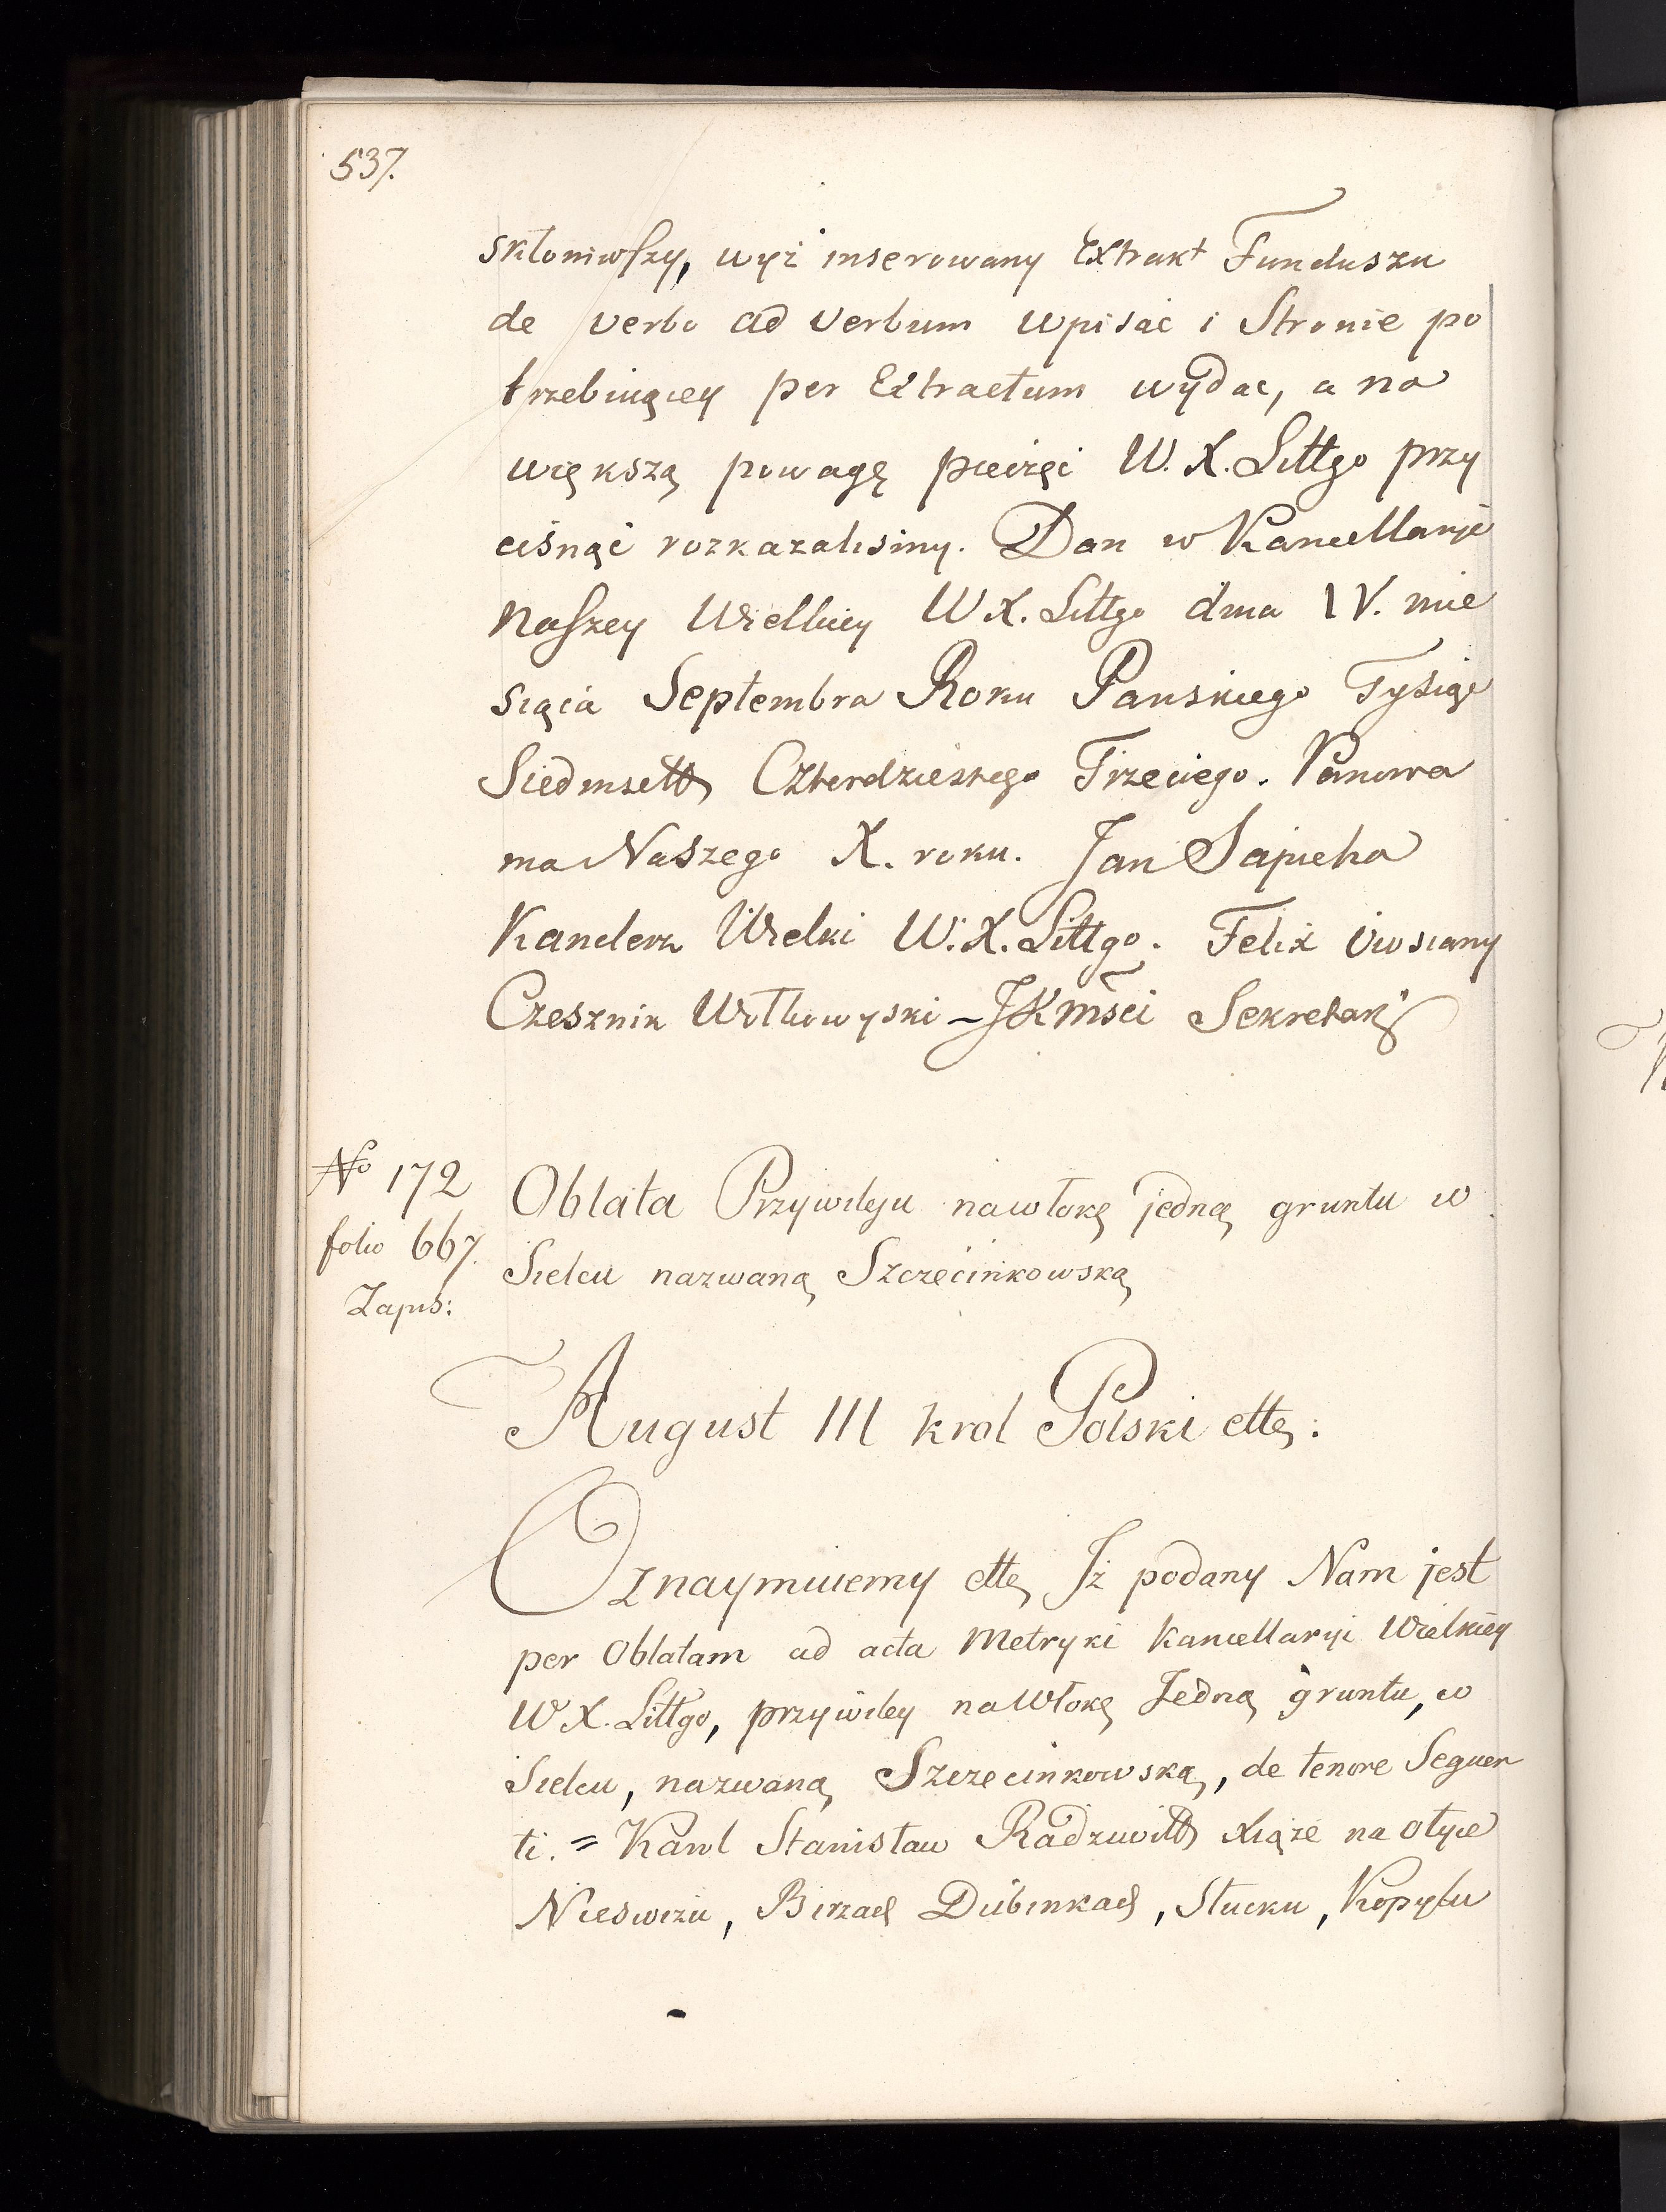 537.
skłoniwszy, wyż inserowany Extrakt Funduszu
de verbo ad verbum wpisać i Stronie po
trzebuiącey per Extractum wydac, a na
większą powagę pieczęć W. X. Littgo przy
cisnąć rozkazalismy. Dan w Kancellarji
Naszey Wielkiey W X. Littgo dnia IV. mie
siąca Septembra Roku Panskiego Tysiąc
Siedmsett Czterdziestego Trzeciego. Panowa
nia Naszego X. roku. Jan Sapieha
Kanclerz Wielki W. X. Littgo. Felix
Czesznik Wołkowyski - JKmsci Sekretarz
No 172
folio 667.
Zapis:
Oblata Przywileju na włokę jedną gruntu w
Sielcu nazwaną Szczecinkowską
August III krol Polski ettc:
Oznaymuiemy ettc Jż podany Nam jest
per Oblatam ad acta Metryki Kancellaryi Wielkiey
W X. Littgo, przywiley na Włokę Jedną gruntu, w
Sielcu, nazwaną Szczecinkowską, de tenore Sequen
ti. = Karol Stanisław Radziwiłł Xiąże na Ołyce
Nieswiżu, Birżach Dubinkach, Słucku, Kopylu